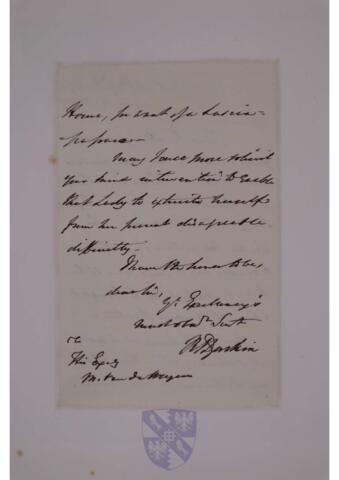 Home, for want of a Lascia-
passare—
May I once more solicit
Your kind intervention to enable
that Lady to extricate herself
from her present disagreeable
difficulty—
I have the honor to be,
dear Sir, Yr Excellency's
Most obdt Servt
His Excy
M. Van de Weyer